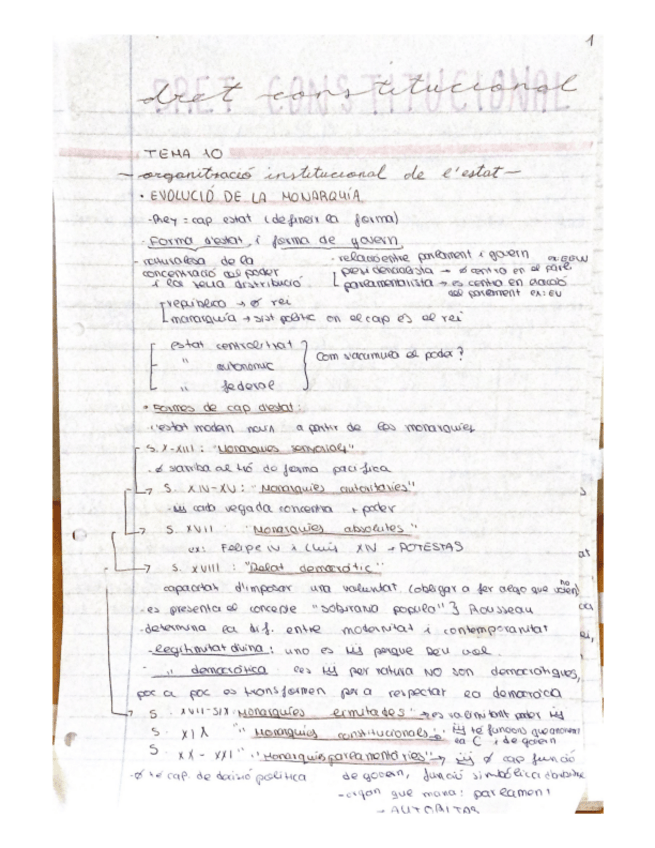 1
DRET CONSTITUCIONAL
dret constitucional
TEMA 10
- organització institucional de l'estat -
• EVOLUCIÓ DE LA MONARQUÍA
- Rey = cap estat (defineix la forma)
- Forma d'estat i forma de govern
- naturalesa de la concentració del poder i la seva distribució
[república → Ø rei
[monarquía → sist polític on el cap es el rei
- relació entre parlament i govern
presidencialista → Ø centra en el parl. ex: EEUU
parlamentarista → es centra en elecció del parlament ex: EU
estat centralitzat
" autonomic
" federal
Com s'acumula el poder?
• Formes de cap d'estat:
L'estat modern neix a partir de les monarquies
S. X-XIII: "Monarquies senyorials"
- Ø s'arriba al tró de forma pacifica
→ S. XIV-XV: "Monarquies autoritaries"
cada vegada concentra + poder
→ S. XVII: "Monarquies absolutes"
ex: Felipe IV i Lluis XIV → POTESTAS
→ S. XVIII: "Relat democràtic"
capacitat d'imposar una voluntat (obligar a fer algo que no volen)
- es presenta el concepte "sobirania popular" } Rousseau
- determina la dif. entre modernitat i contemporanitat
- legitimitat divina: uno es perque Deu vol.
- " democrática: per natura NO son democratiques,
poc a poc es transformen per a respectar la democracia
→ S. XVII-SIX: Monarquíes limitades → es va limitant poder
S. XIX "Monarquies constitucionals → té funcions que anomena la C i de govern
S. XX - XXI "Monarquies parlamentàries" → Ø cap funció
- Ø té cap de decisió política
de govern, funció simbólica
- organ que mana: parlament
- AUTORITAS